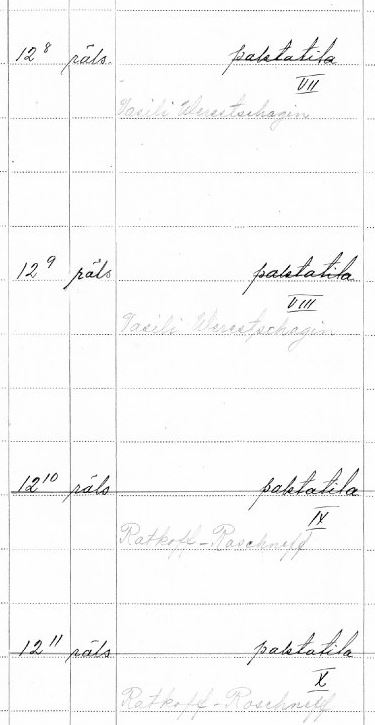 12⁸ räls. palstatila
VII
Vasili Werestschagin
12⁹ räls palstatila
VIII
Vasili Werestschagin
12¹⁰ räls palstatila
IX
Ratkoff-Roschneff
12¹¹ räls palstatila
X
Ratkoff-Roschneff